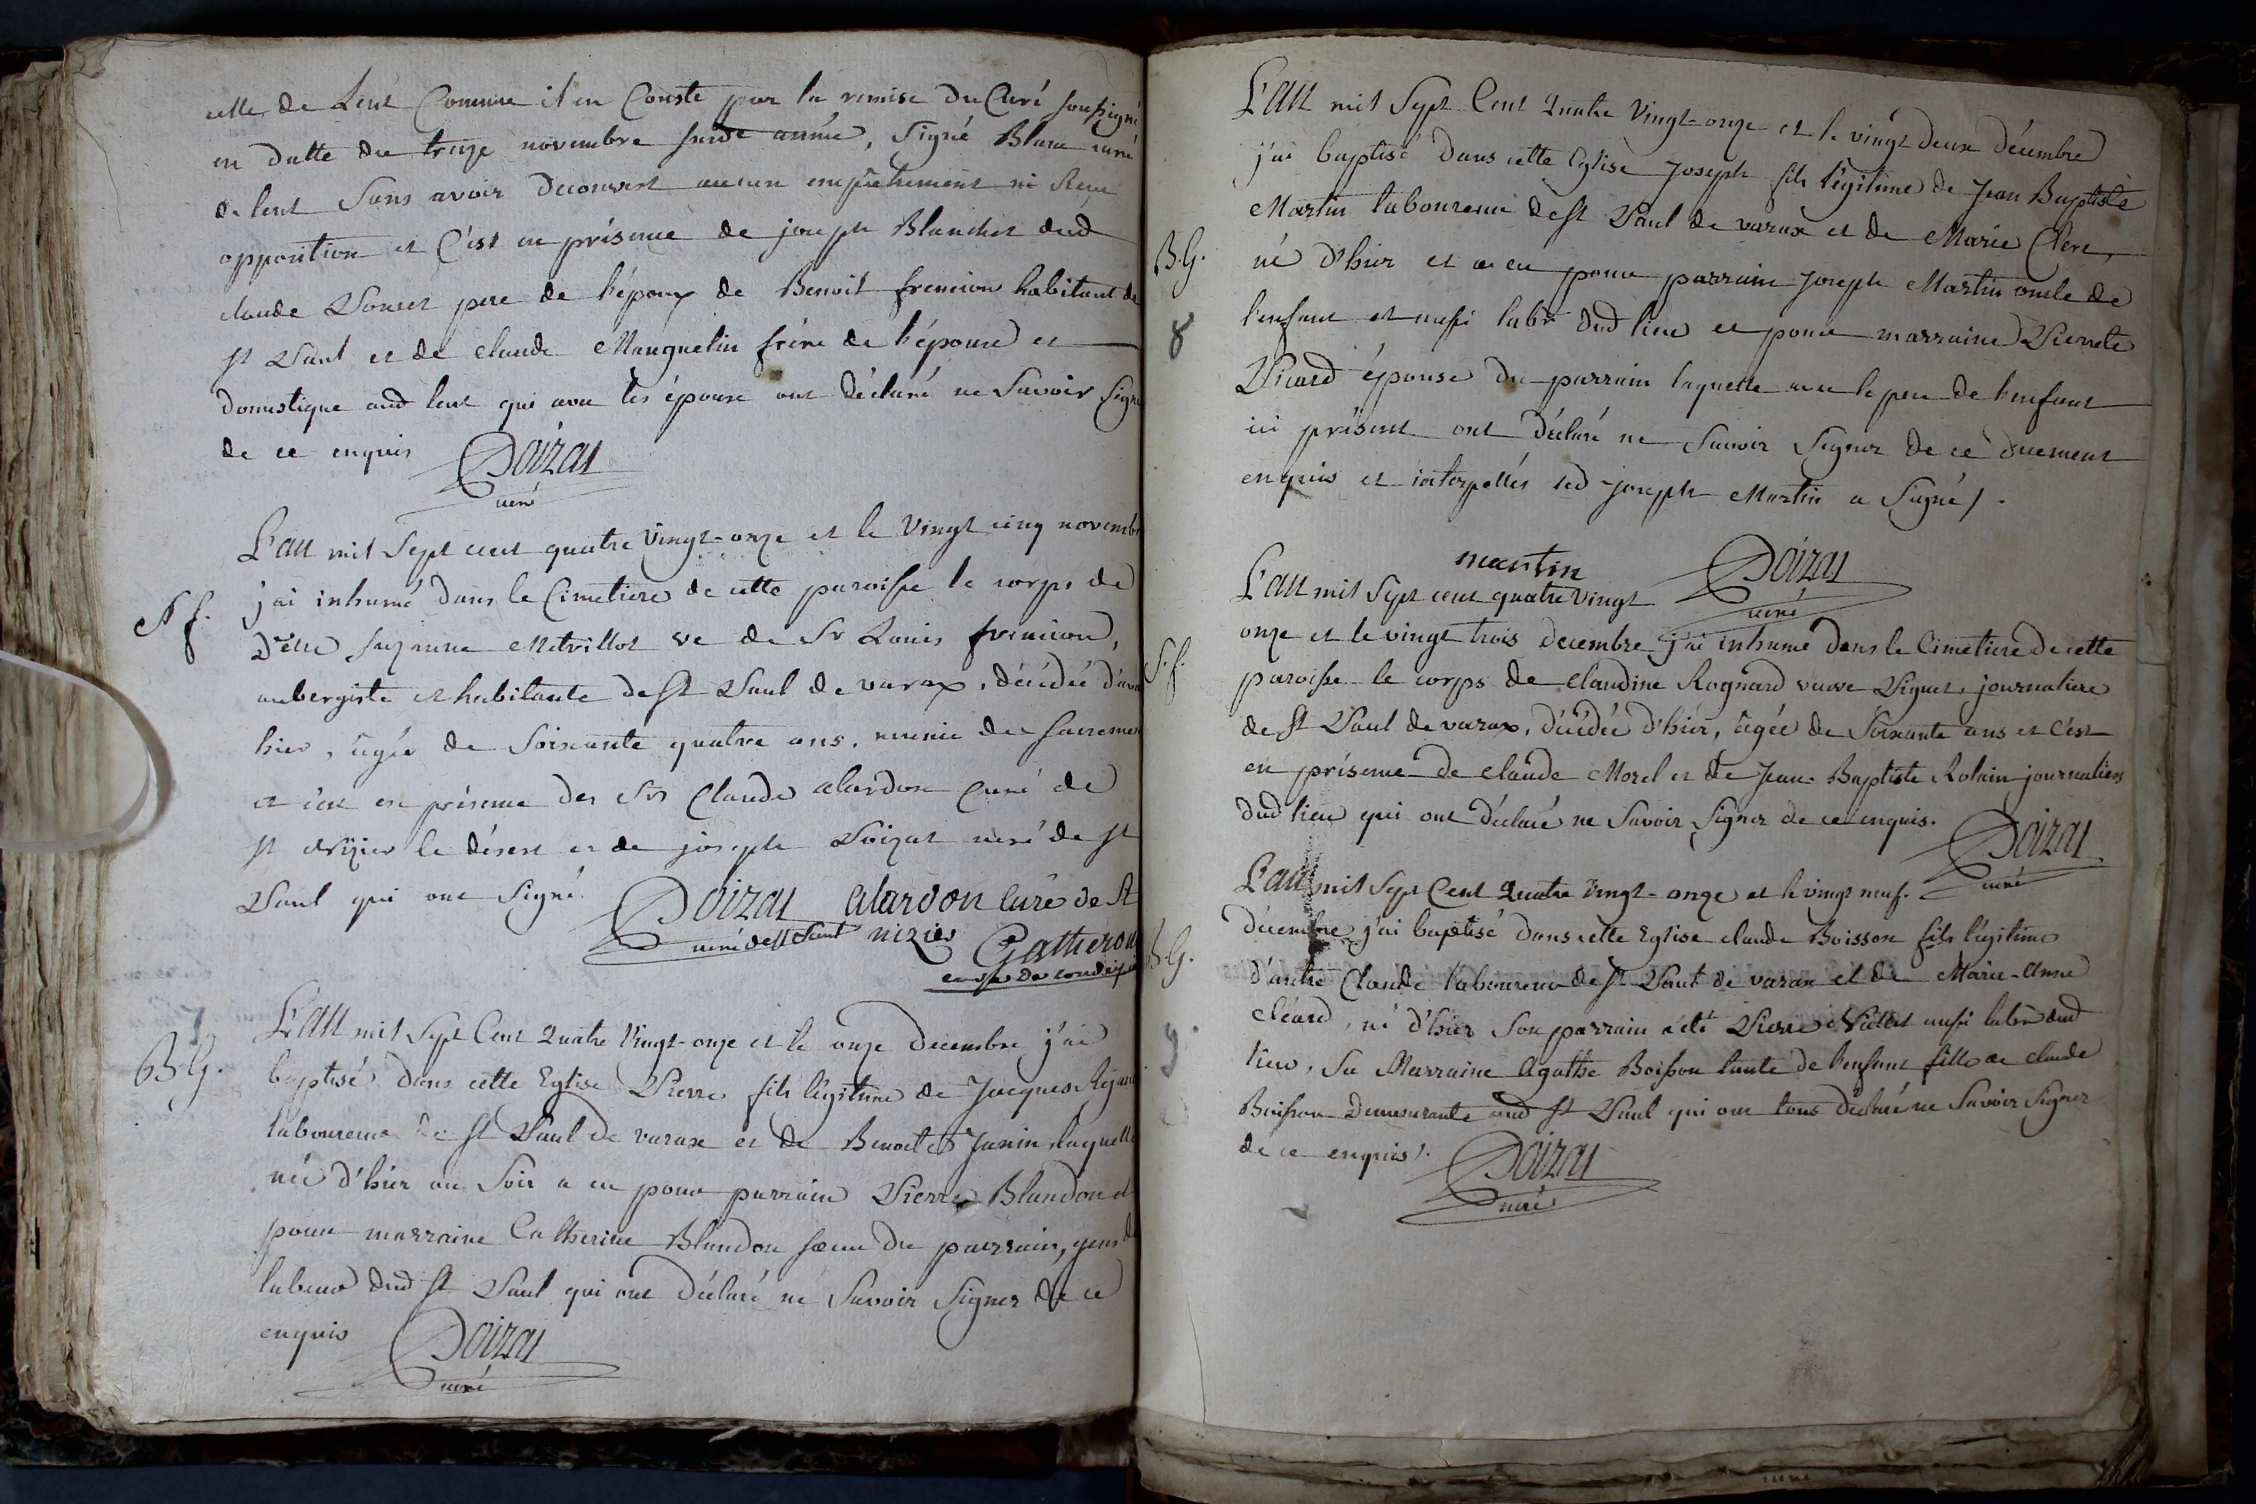 celle de Lent Comme il en Conste par la remise du Curé soussigné
en datte du treize novembre susde année, Signé Blanc curé
de lent Sans avoir decouvert aucun empêchement ni Reçu
opposition et C'est en présence de joseph Blanchet dud
claude Donset pere de l'époux de Benoit fremion habitant de
St Paul et de claude Mauguelin frère de l'épouse et
domestique aud lent qui avec les époux ont déclaré ne Savoir Signer
de ce enquis Poizat
curé
L'an mil Sept cent quatre Vingt-onze et le Vingt cinq novembre
S f. j'ai inhumé dans le Cimetiere de cette paroisse le corps de
Delle Suzanne Metrillot ve de Sr Louis fremion,
aubergiste et habitante de St Paul de varax, décédée d'avant
hier, âgée de Soixante quatre ans, munie des Sacremens
et c'est en présence des Srs Claude alardon Curé de
St Nizier le désert et de joseph Poizat curé de St
Paul qui ont Signé. Poizat alardon Curé de St
curé de St Paul nizier Gatheron
curé de condeissiat
L'an mil Sept Cent Quatre Vingt-onze et le onze decembre j'ai
B.G. baptisé dans cette Eglise Pierre fils légitime de Jacques
laboureur de St Paul de varax et de Benoite Janin laquelle
né d'hier au Soir a eu pour parrain Pierre Blandon et
pour marraine Catherine Blandon sœur du parrain, gens de
labeur dud St Paul qui ont déclaré ne Savoir Signer de ce
enquis Poizat
curé
L'an mil Sept Cent Quatre Vingt-onze et le vingt deux décembre
j'ai baptisé dans cette Eglise Joseph fils légitime de Jean Baptiste
Martin laboureur de St Paul de varax et de Marie Clerc,
B.G. né d'hier et a eu pour parrain Joseph Martin oncle de
8 l'enfant et aussi labr dud lieu et pour marraine Pierrete
Picard épouse du parrain laquelle avec le pere de l'enfant
ici présent ont déclaré ne Savoir Signer de ce duement
enquis et interpellés led joseph Martin a Signé/.
martin Poizat
curé
L'an mil Sept cent quatre Vingt
onze et le vingt trois decembre j'ai inhumé dans le Cimetiere de cette
S.f. paroisse le corps de Claudine Rognard veuve Piguet, journaliere
de St Paul de varax, décédée d'hier, âgée de Soixante ans et c'est
en présence de claude Morel et de Jean-Baptiste Rolain journaliers
dud lieu qui ont déclaré ne Savoir Signer de ce enquis. Poizat
curé
L'an mil Sept Cent Quatre Vingt-onze et le vingt neuf.
B.G. décembre j'ai baptisé dans cette Eglise claude Boisson fils légitime
d'autre Claude laboureur de St Paul de varax et de Marie-Anne
9 Cléard, né d'hier Son parrain a été Pierre Viallet aussi labr dud
lieu, Sa Marraine Agathe Boisson tante de l'enfant fille de claude
Boisson Demeurante aud St Paul qui ont tous déclaré ne Savoir Signer
de ce enquis. Poizat
curé